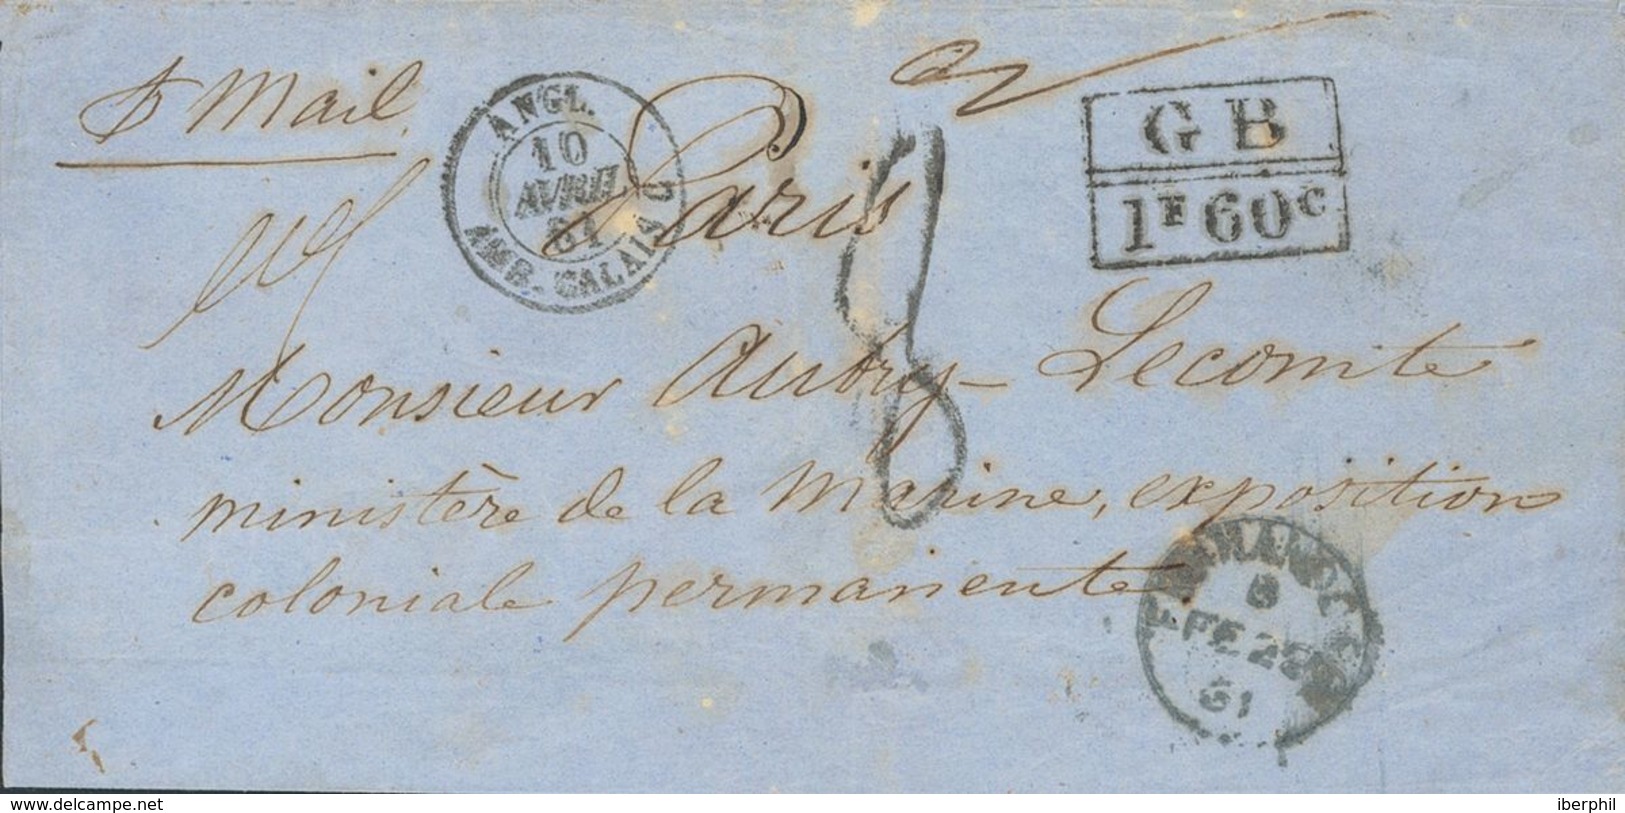 p Mail
Paris
ANGL.
10
AVRIL
61
AMB. CALAIS C
8
GB
1F60c
Monsieur Aubry-Lecomte
ministère de la Marine, exposition
coloniale permanente.
FREMANTLE
8
FE 22
61
www.delcampe.net
iberphil